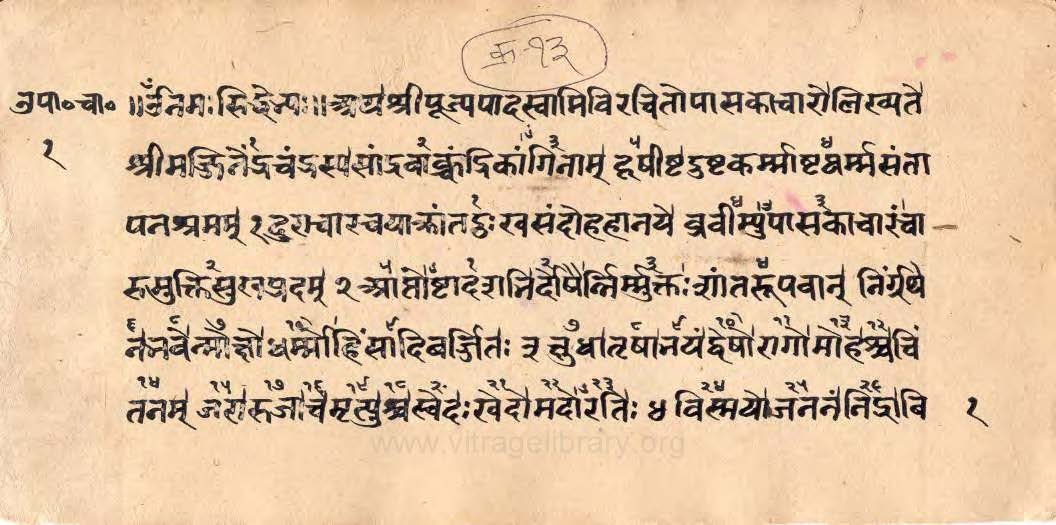 क-१३
उपा॰ चा॰ ॥ ॐ नमः सिद्धेभ्यः ॥ अथ श्रीपूज्यपादस्वामिविरचितोपासकाचारो लिख्यते
१ श्रीमज्जिनेंद्रचंद्रस्य सांद्रवाक्चंद्रिकांगिनाम् हृषीष्टदुष्टकर्म्माष्टघर्म्मसंता
पनश्रमम् १ दुराचारचयाक्रांतदुःखसंदोहहानये ब्रवीम्युपासकाचारं चा
रुमुक्तिसुखप्रदम् २ आप्तोष्टादशभिर्दोषैर्निर्मुक्तः शांतरूपवान् निर्ग्रंथे
न भवेन्मोक्षो धर्म्मो हिंसादिवर्ज्जितः ३ क्षुधा तृषा भयं द्वेषो रागो मोहश्च चिं
तनम् जरा रुजा च मृत्युश्च स्वेदः खेदो मदो रतिः ४ विस्मयो जननं निद्रा वि १
www.vitragelibrary.org